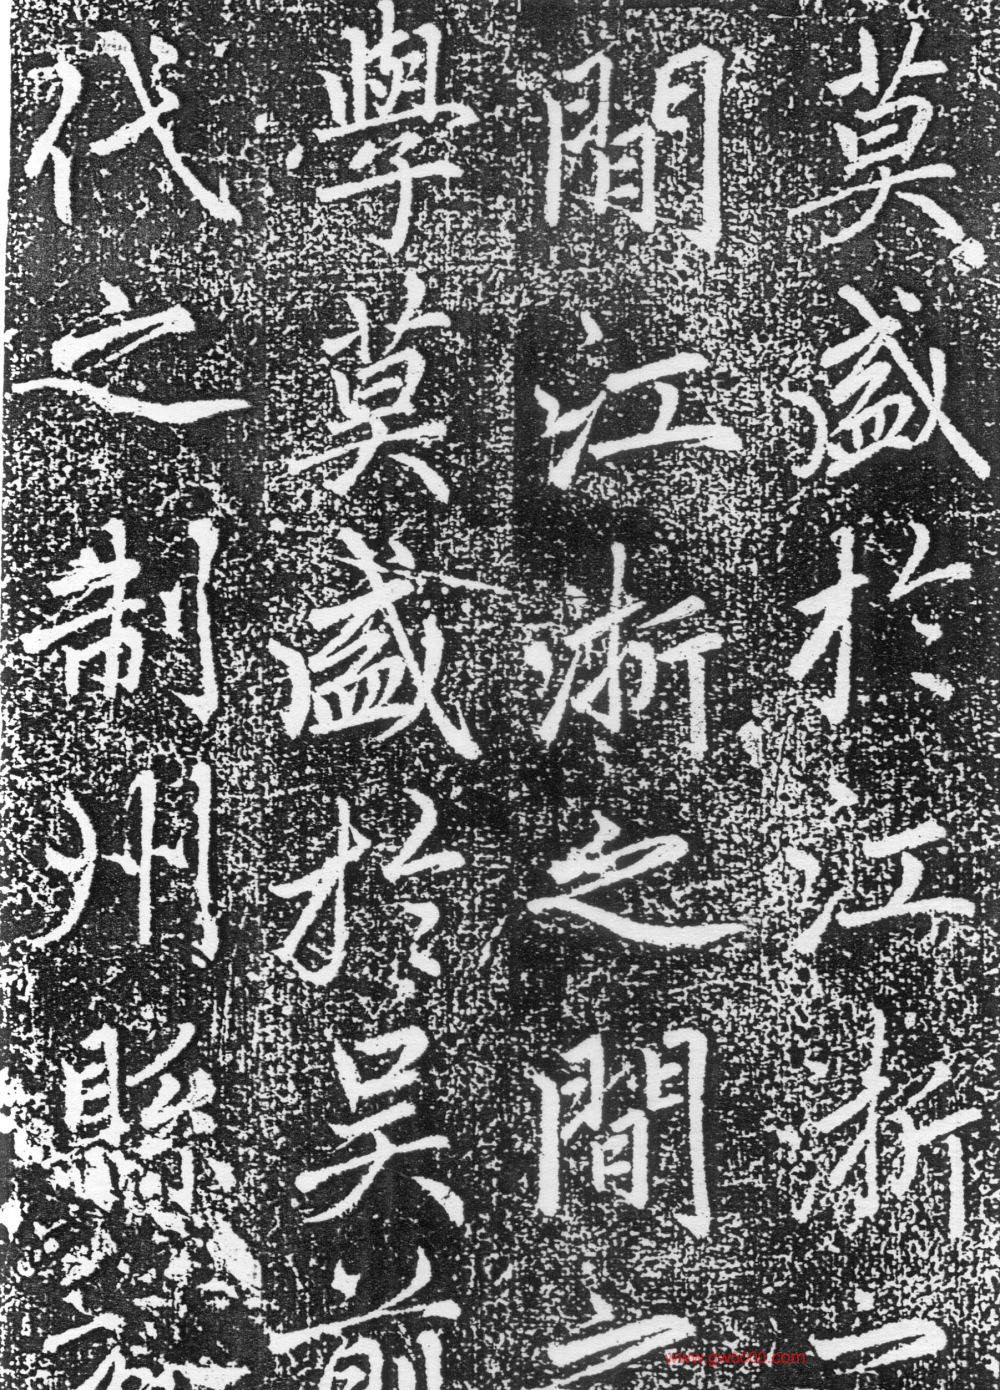 莫盛於江浙之
間江浙之間之
學莫盛於吳前
代之制州縣
www.gw5000.com